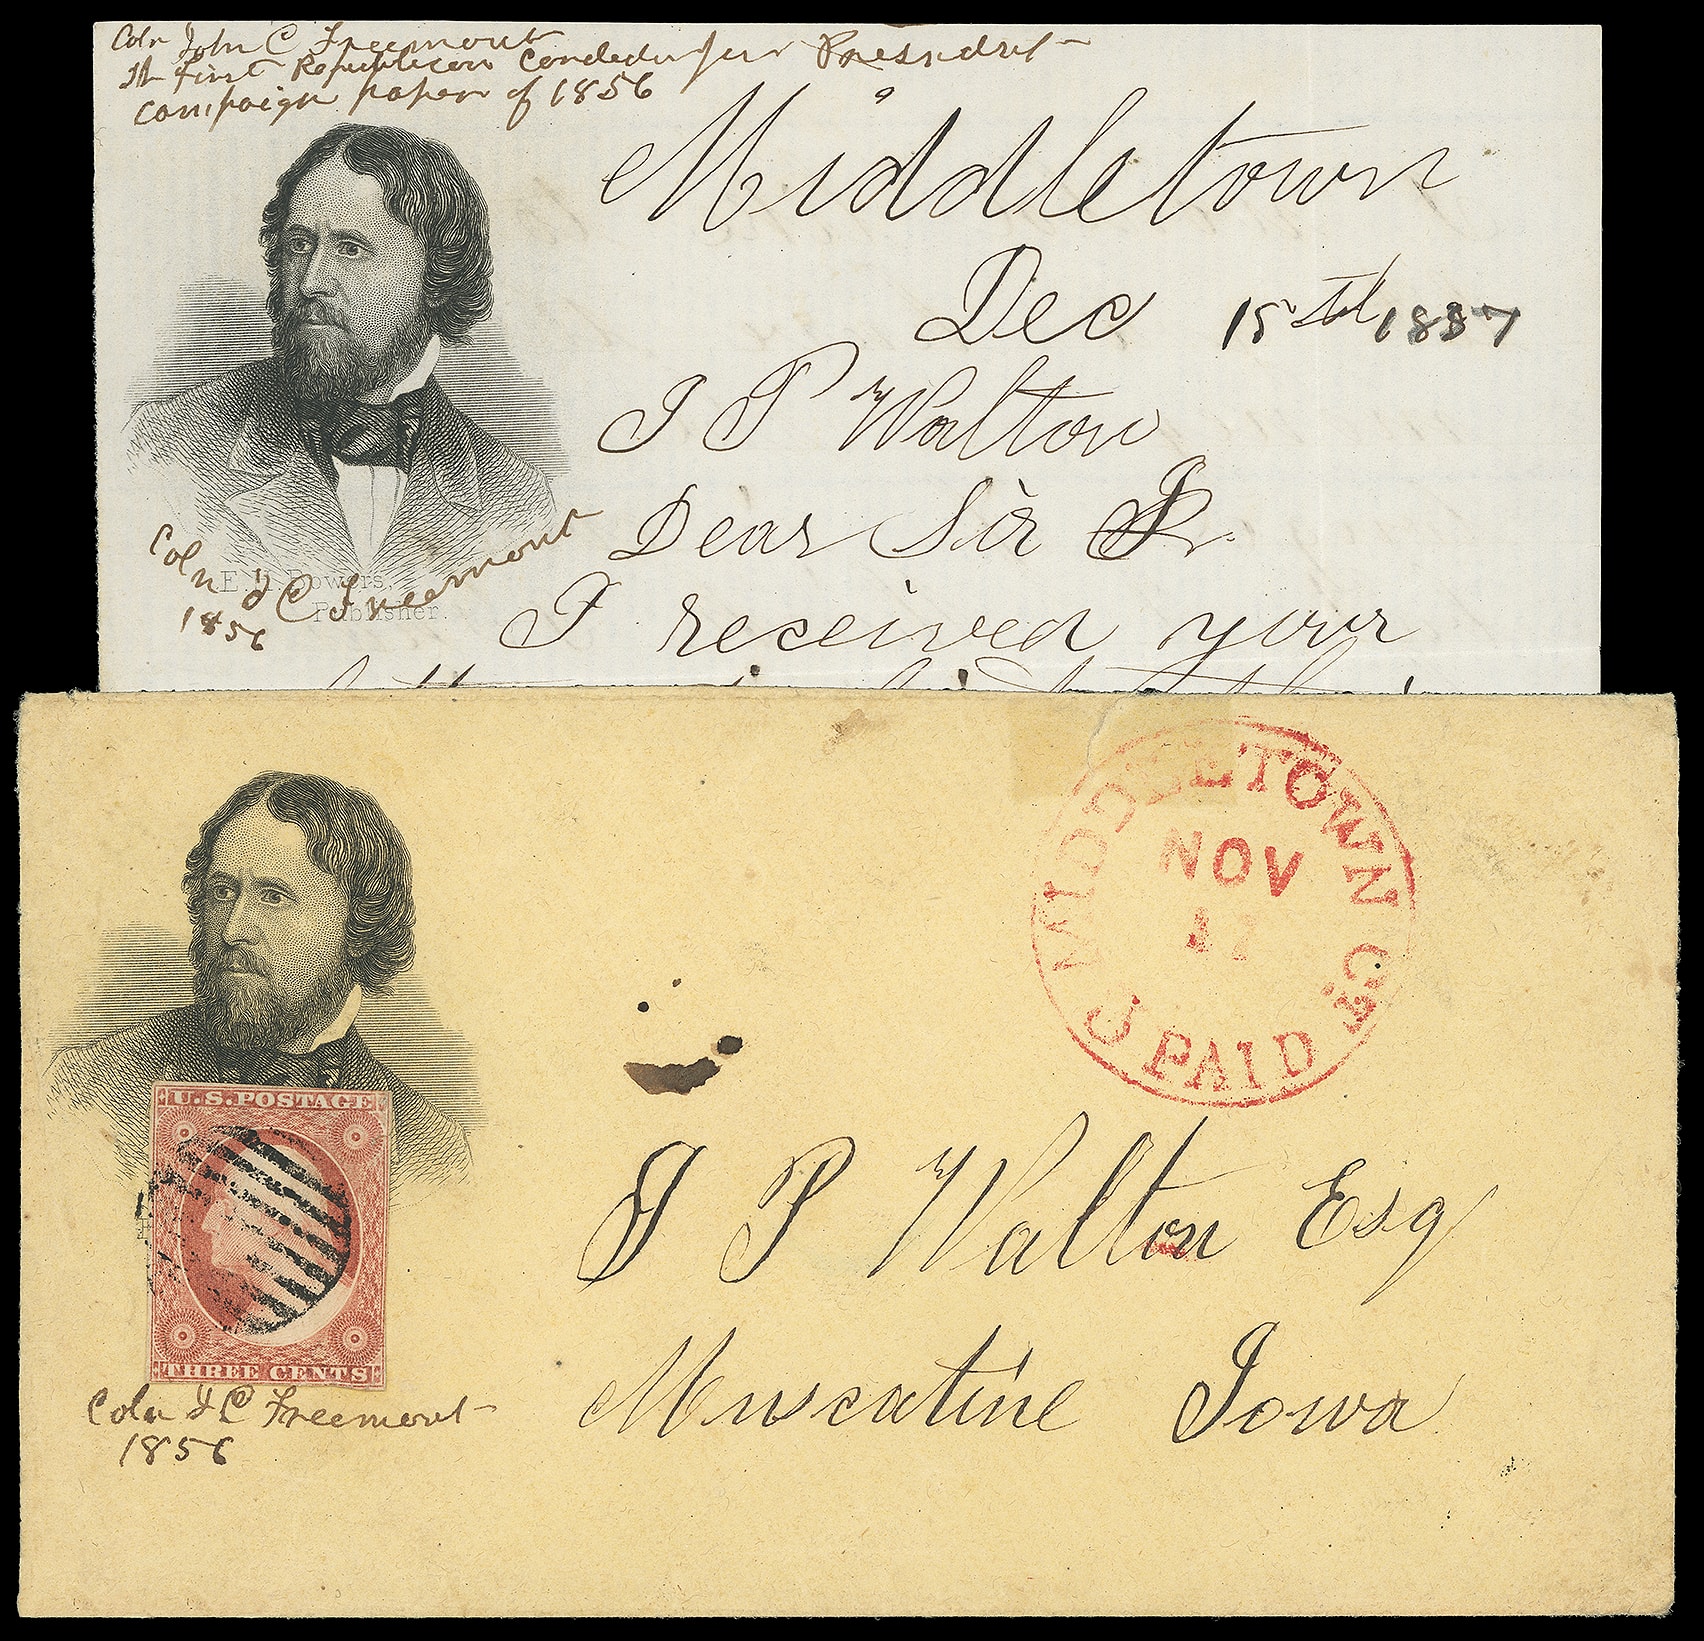 Coln John C Freemont
th first Republican Condedu for Presidnt
Campaign paper of 1856
Middletown
Dec 15th 1857
J P Walton
Dear Sir
I received your
E. H. Bowers,
Publisher.
Coln J C Freemont
1856
MIDDLETOWN Ct.
NOV
PAID 3 C
U.S. POSTAGE
THREE CENTS
J P Walton Esq
Muscatine Iowa
Coln J C Freemont
1856